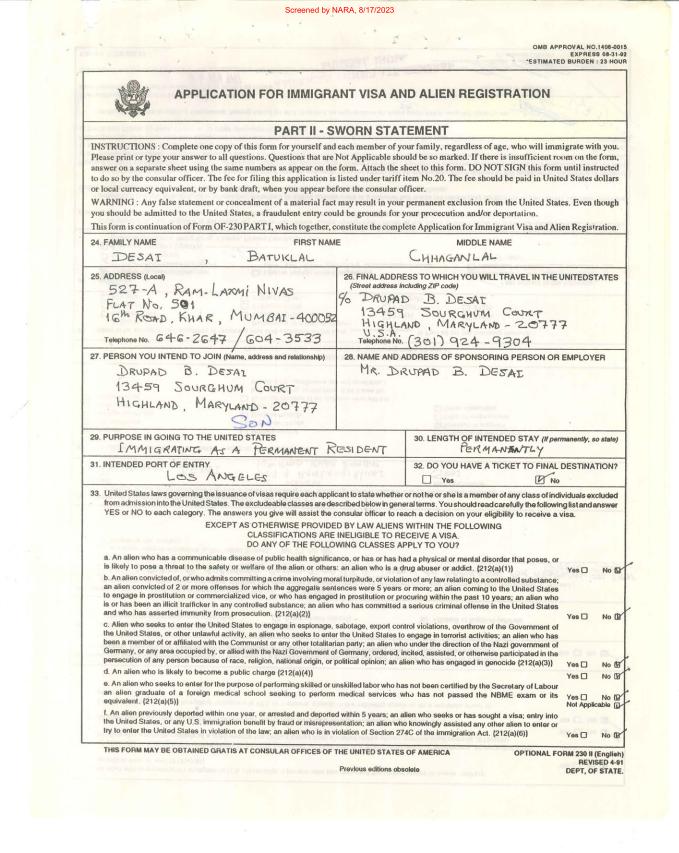 Screened by NARA, 8/17/2023
OMB APPROVAL NO.1406-0015
EXPRESS 08-31-92
*ESTIMATED BURDEN : 23 HOUR
APPLICATION FOR IMMIGRANT VISA AND ALIEN REGISTRATION
PART II - SWORN STATEMENT
INSTRUCTIONS : Complete one copy of this form for yourself and each member of your family, regardless of age, who will immigrate with you.
Please print or type your answer to all questions. Questions that are Not Applicable should be so marked. If there is insufficient room on the form,
answer on a separate sheet using the same numbers as appear on the form. Attach the sheet to this form. DO NOT SIGN this form until instructed
to do so by the consular officer. The fee for filing this application is listed under tariff item No.20. The fee should be paid in United States dollars
or local currency equivalent, or by bank draft, when you appear before the consular officer.
WARNING : Any false statement or concealment of a material fact may result in your permanent exclusion from the United States. Even though
you should be admitted to the United States, a fraudulent entry could be grounds for your procecution and/or deportation.
This form is continuation of Form OF-230 PART I, which together, constitute the complete Application for Immigrant Visa and Alien Registration.
24. FAMILY NAME FIRST NAME MIDDLE NAME
DESAI , BATUKLAL CHHAGANLAL
25. ADDRESS (Local)
527-A, RAM-LAXMI NIVAS
FLAT NO. 501
16th ROAD, KHAR, MUMBAI-400052
Telephone No. 646-2647 / 604-3533
26. FINAL ADDRESS TO WHICH YOU WILL TRAVEL IN THE UNITEDSTATES
(Street address including ZIP code)
c/o DRUPAD B. DESAI
13459 SOURGHUM COURT
HIGHLAND, MARYLAND - 20777
U.S.A.
Telephone No. (301) 924-9304
27. PERSON YOU INTEND TO JOIN (Name, address and relationship)
DRUPAD B. DESAI
13459 SOURGHUM COURT
HIGHLAND, MARYLAND - 20777
SON
28. NAME AND ADDRESS OF SPONSORING PERSON OR EMPLOYER
MR. DRUPAD B. DESAI
29. PURPOSE IN GOING TO THE UNITED STATES
IMMIGRATING AS A PERMANENT RESIDENT
30. LENGTH OF INTENDED STAY (If permanently, so state)
PERMANENTLY
31. INTENDED PORT OF ENTRY
LOS ANGELES
32. DO YOU HAVE A TICKET TO FINAL DESTINATION?
Yes No
33. United States laws governing the issuance of visas require each applicant to state whether or not he or she is a member of any class of individuals excluded
from admission into the United States. The excludeable classes are described below in general terms. You should read carefully the following list and answer
YES or NO to each category. The answers you give will assist the consular officer to reach a decision on your eligibility to receive a visa.
EXCEPT AS OTHERWISE PROVIDED BY LAW ALIENS WITHIN THE FOLLOWING
CLASSIFICATIONS ARE INELIGIBLE TO RECEIVE A VISA.
DO ANY OF THE FOLLOWING CLASSES APPLY TO YOU?
a. An alien who has a communicable disease of public health significance, or has or has had a physical or mental disorder that poses, or
is likely to pose a threat to the safety or welfare of the alien or others: an alien who is a drug abuser or addict. {212(a)(1)} Yes No
b. An alien convicted of, or who admits committing a crime involving moral turpitude, or violation of any law relating to a controlled substance;
an alien convicted of 2 or more offenses for which the aggregate sentences were 5 years or more; an alien coming to the United States
to engage in prostitution or commercialized vice, or who has engaged in prostitution or procuring within the past 10 years; an alien who
is or has been an illicit trafficker in any controlled substance; an alien who has committed a serious criminal offense in the United States
and who has asserted immunity from prosecution. {212(a)(2)} Yes No
c. Alien who seeks to enter the United States to engage in espionage, sabotage, export control violations, overthrow of the Government of
the United States, or other unlawful activity, an alien who seeks to enter the United States to engage in terrorist activities; an alien who has
been a member of or affiliated with the Communist or any other totalitarian party; an alien who under the direction of the Nazi government of
Germany, or any area occupied by, or allied with the Nazi Government of Germany, ordered, incited, assisted, or otherwise participated in the
persecution of any person because of race, religion, national origin, or political opinion; an alien who has engaged in genocide {212(a)(3)} Yes No
d. An alien who is likely to become a public charge {212(a)(4)} Yes No
e. An alien who seeks to enter for the purpose of performing skilled or unskilled labor who has not been certified by the Secretary of Labour
an alien graduate of a foreign medical school seeking to perform medical services who has not passed the NBME exam or its
equivalent. {212(a)(5)} Yes No
Not Applicable
f. An alien previously deported within one year, or arrested and deported within 5 years; an alien who seeks or has sought a visa; entry into
the United States, or any U.S. immigration benefit by fraud or misrepresentation; an alien who knowingly assisted any other alien to enter or
try to enter the United States in violation of the law; an alien who is in violation of Section 274C of the immigration Act. {212(a)(6)} Yes No
THIS FORM MAY BE OBTAINED GRATIS AT CONSULAR OFFICES OF THE UNITED STATES OF AMERICA
OPTIONAL FORM 230 II (English)
REVISED 4-91
DEPT, OF STATE.
Previous editions obsolete